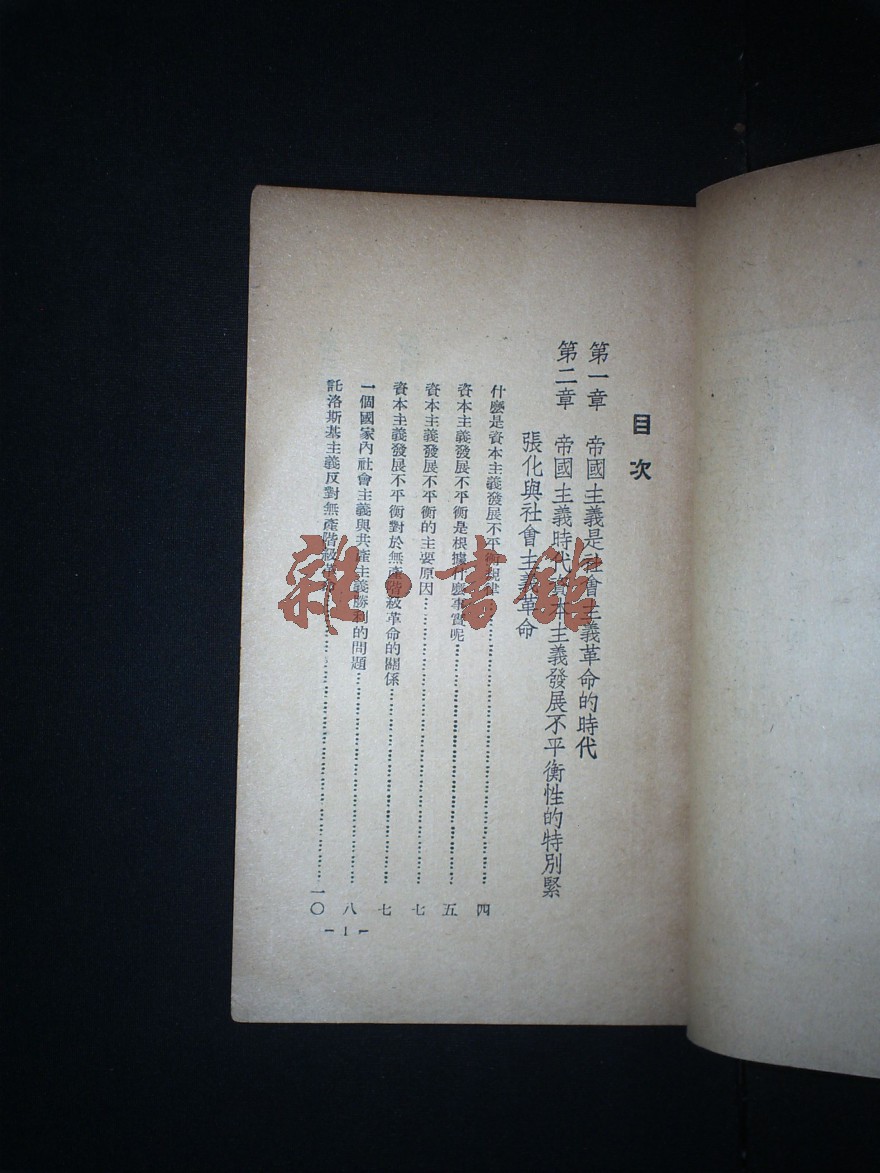 目次
第一章 帝國主義是社會主義革命的時代
第二章 帝國主義時代資本主義發展不平衡性的特別緊
張化與社會主義革命
什麼是資本主義發展不平衡規律……四
資本主義發展不平衡是根據什麼事實呢……五
資本主義發展不平衡的主要原因……七
資本主義發展不平衡對於無產階級革命的關係……七
一個國家內社會主義與共產主義勝利的問題……八
託洛斯基主義反對無產階級革命……一〇
— 1 —
雜·書館